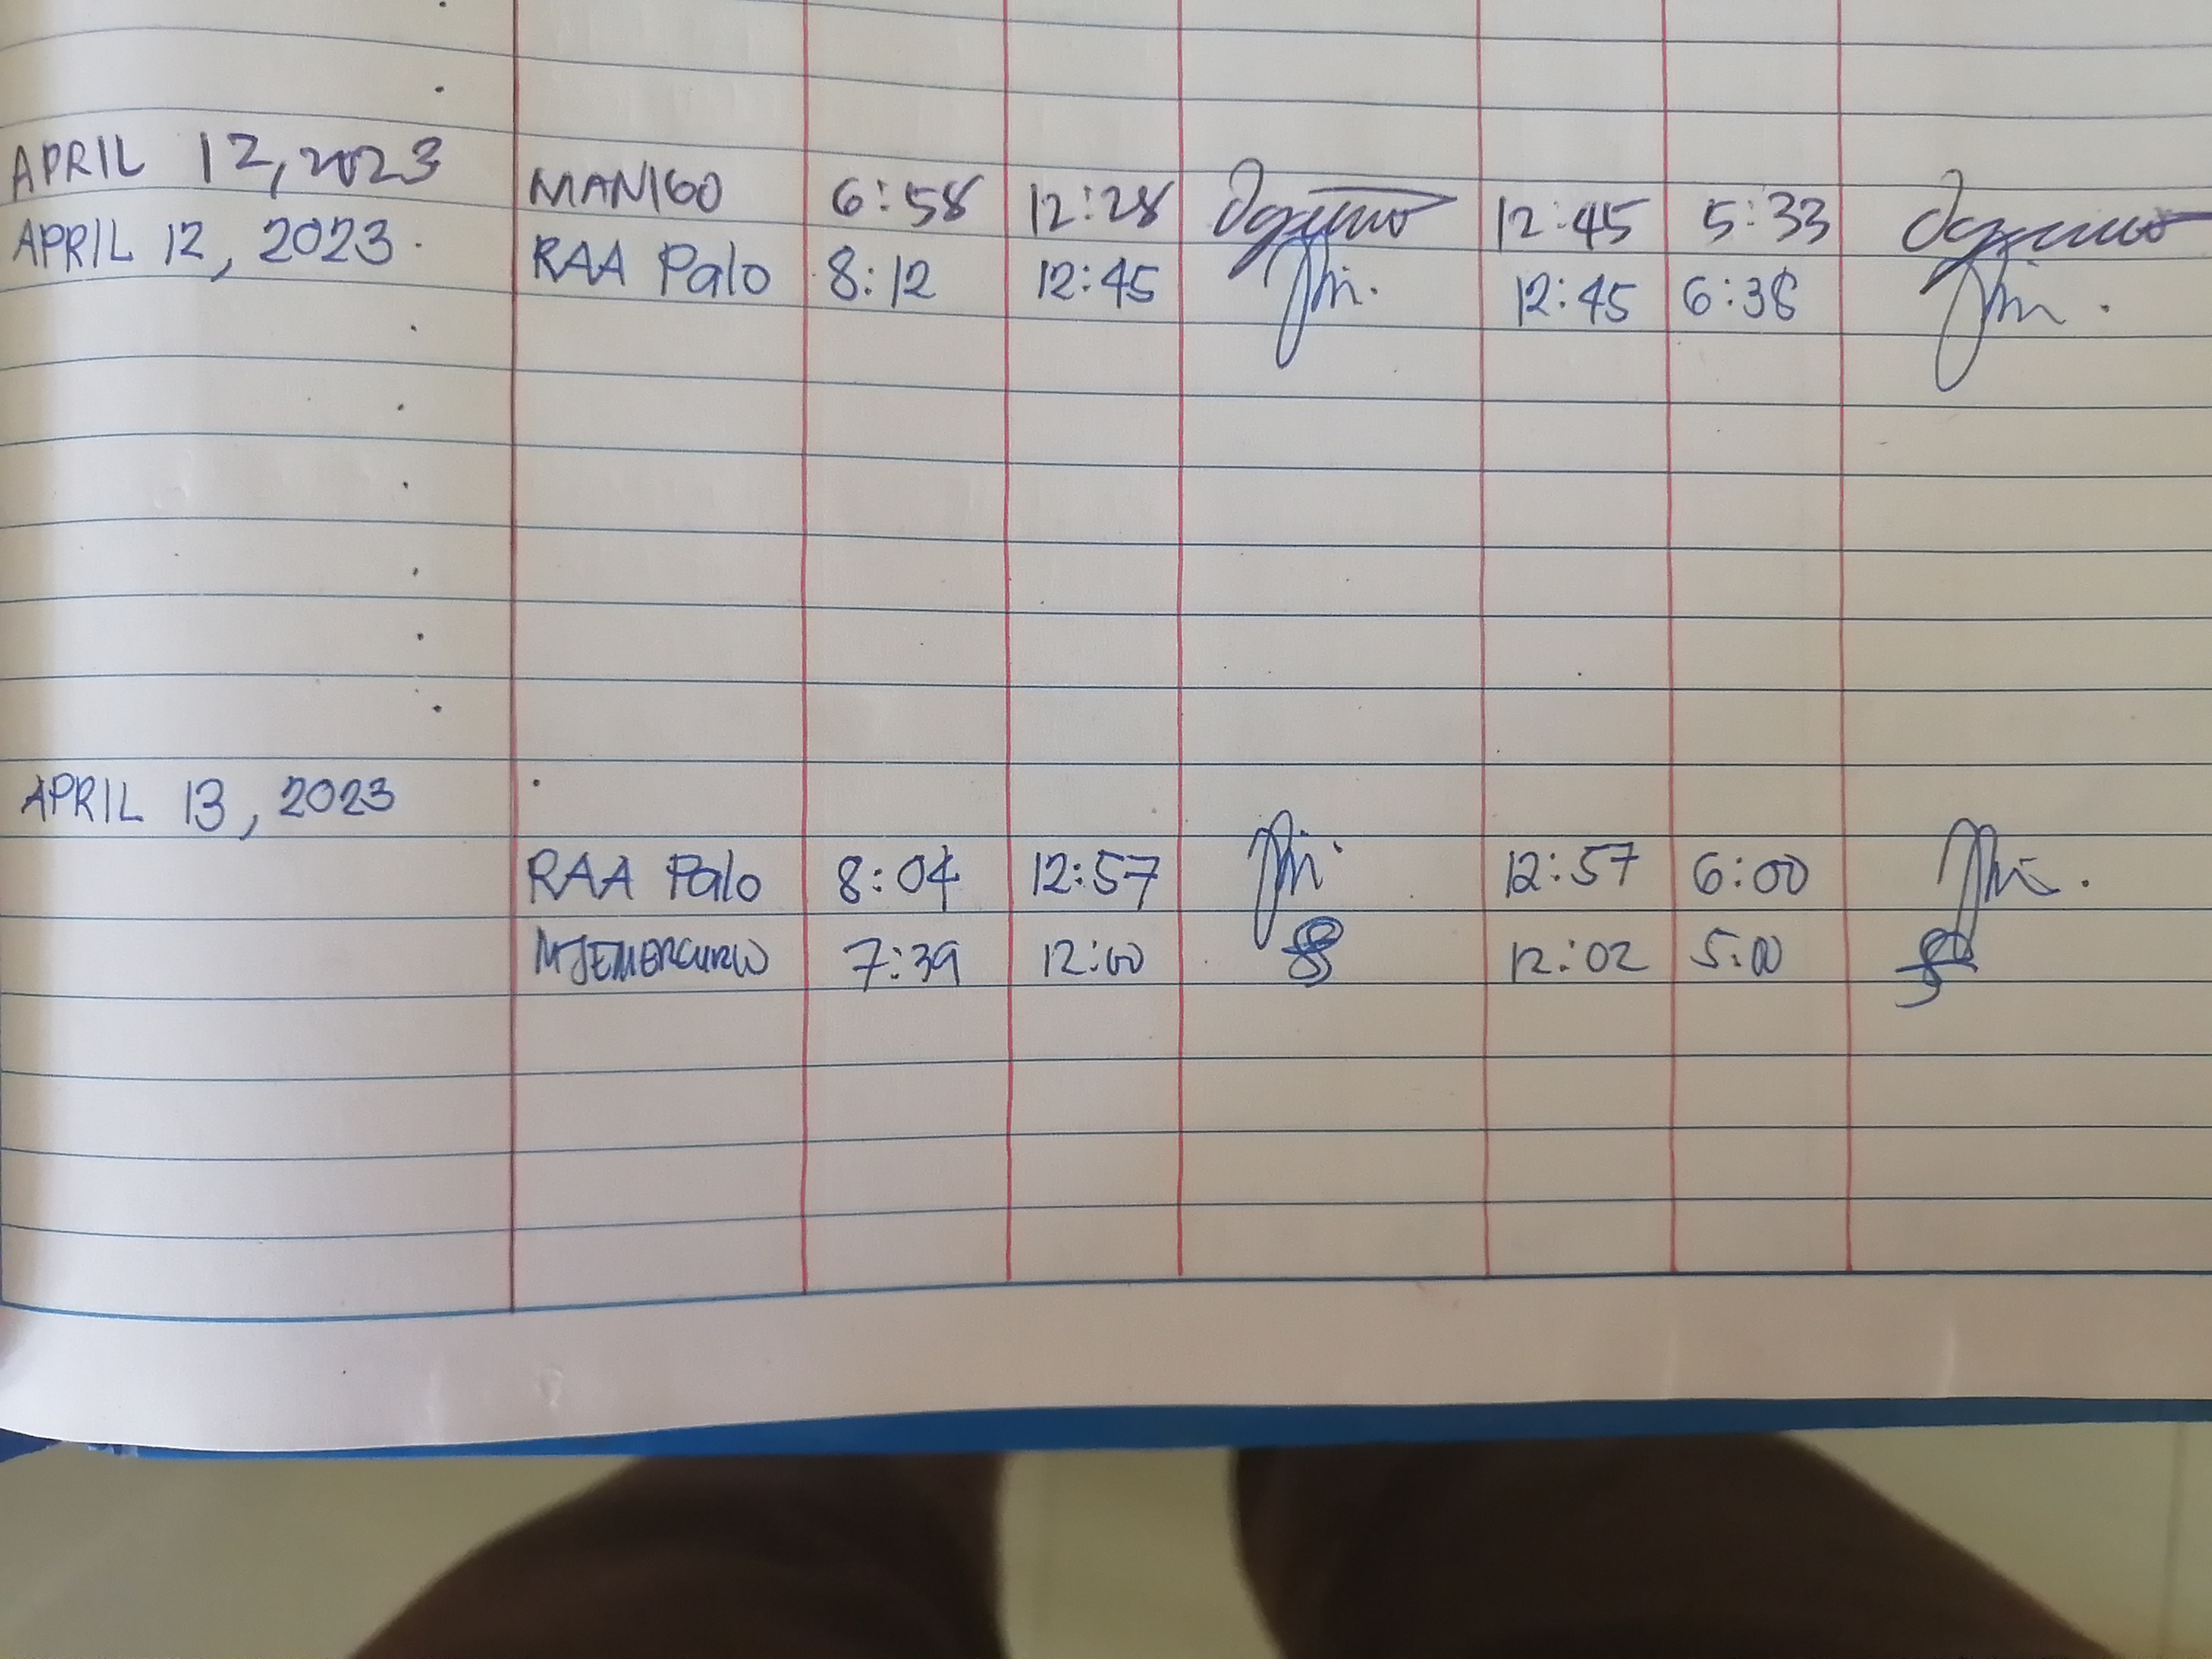 APRIL 12, 2023 MANIGO 6:58 12:28 12:45 5:33
APRIL 12, 2023 RAA Palo 8:12 12:45 12:45 6:38
APRIL 13, 2023
RAA Palo 8:04 12:57 12:57 6:00
MJEMERCURIO 7:39 12:00 12:02 5:00